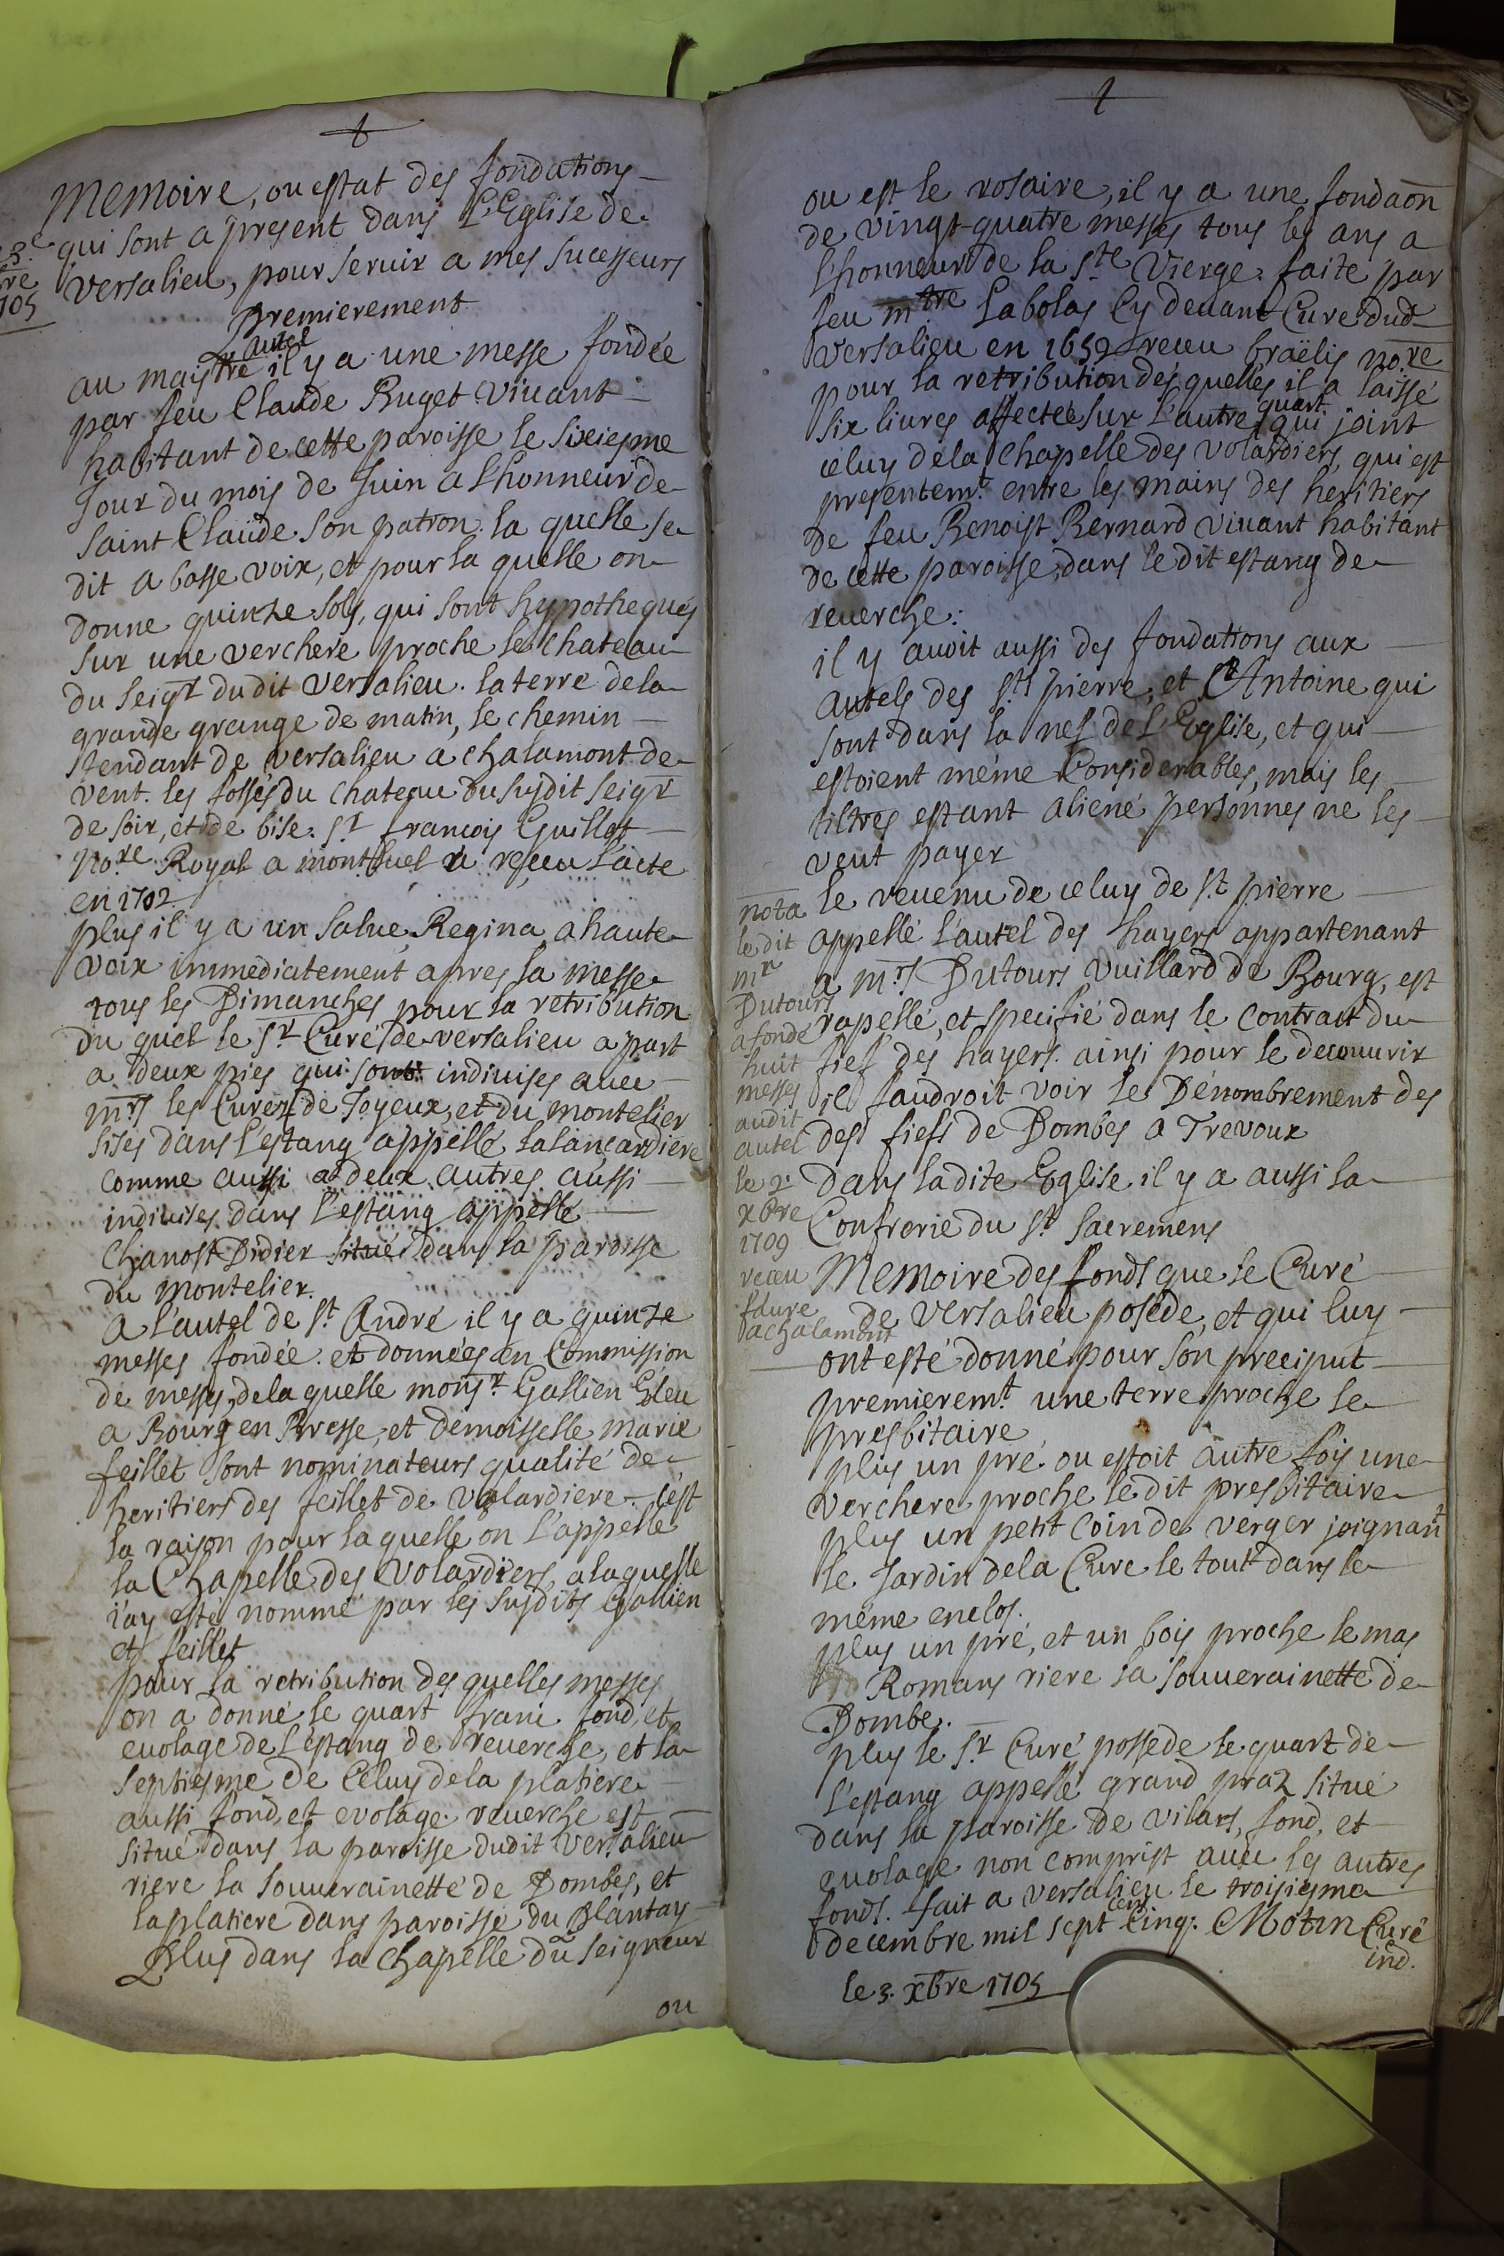 Memoire, ou estat des fondations
qui sont a present dans L'Eglise de
Versalieu, pour servir a mes sucesseurs
3.e
re
1705
Premierement
au maistre autel il y a une messe fondée
par feu Claude Ruget vivant
habitant de cette paroisse le sixiesme
Jour du mois de Juin a l'honneur de
saint Claude son patron. la quelle se
dit a basse voix, et pour la quelle on
donne quinze sols, qui sont hypothequés
sur une verchere proche le chateau
du seigr dudit Versalieu. la terre de la
grande grange de matin, le chemin
tendant de versalieu a chalamont de
vent. les fossés du chateau du susdit seigr
de soir, et de bise. sr francois Guillot
No.re Royal a montluel a receu l'acte
en 1702.
plus il y a un salve Regina a haute
voix immediatement apres la messe
tous les Dimanches pour la retribution
du quel le sr Curé de versalieu a part
a deux pies qui sont indivises avec
mrs les Curez de Joyeux, et du montelier
sises dans l'estang appellé la lancardiere
comme aussi a deux autres aussi
indivises dans l'estang appellé
Chanost Didier situé dans la paroisse
du montelier.
a l'autel de st André il y a quinze
messes fondée. et données en Commission
de messes, de la quelle monsr. Gallien Esleu
a Bourg en Bresse, et demoisselle marie
feillet sont nominateurs qualité de
heritiers des feillet de volardiere. c'est
la raison pour laquelle on l'appelle
la Chapelle des Volardiers, a laquelle
j'ay esté nommé par les susdits Gallien
et feillet
pour la retribution des quelles messes
on a donné le quart franc. fond, et
evolage de l'estang de reverche, et la
septiesme de celuy de la platiere
aussi fond, et evolage. reverche est
situé dans la paroisse dudit Versalieu
riere la souverainetté de Dombes, et
la platiere dans paroisse du Plantay
Plus dans la chapelle du seigneur
ou
ou est le rosaire, il y a une fondaõn
de vingt-quatre messes tous les ans a
l'honneur de la ste Vierge. faite par
feu mtre Labolas cy devant Curé dud
versalieu en 1659 receu Braëlis no.re
pour la retribution des quelles il a laissé
six livres affectée sur l'autre quart qui joint
celuy de la Chapelle des volardiers, qui est
presentemt. entre les mains des heritiers
de feu Benoist Bernard vivant habitant
de cette paroisse, dans le dit estang de
reverche.
il y avoit aussi des fondations aux
autels des sts pierre, et st Antoine qui
sont dans la nef de L'Eglise, et qui
estoient méme considerables, mais les
tiltres estant aliené personnes ne les
veut payer
le revenu de celuy de st. pierre
appellé l'autel des hayers appartenant
a mrs Dutours Vuillard de Bourg, est
rapellé, et specifié dans le contract du
fief des hayers. ainsi pour le decouvrir
il faudroit voir le Dénombrement des
des fiefs de Dombes a Trevoux
nota
le dit
mr
Dutours
a fondé
huit
messes
audit
autel
le 2.
xbre
1709
receu
faure
a chalamont
Dans ladite Eglise il y a aussi la
Confrerie du st sacremens
Memoire des fonds que le Curé
de Versalieu posede, et qui luy
ont esté donné pour son preciput
premieremt. une terre proche le
presbitaire
plus un pré ou estoit autre fois une
verchere proche le dit presbitaire
plus un petit coin de verger joignant
le Jardin de la Cure le tout dans le
méme enclos.
plus un pré, et un bois proche le mas
Romans riere la souverainette de
Dombe.
plus le sr. Curé possede le quart de
l'estang appellé grand praz situé
dans la paroisse de vilars, fond, et
evolage non comprist avec les autres
fonds. fait a versalieu le troisiesme
decembre mil sept cent cinq. Motin Curé
ind.
le 3. xbre 1705